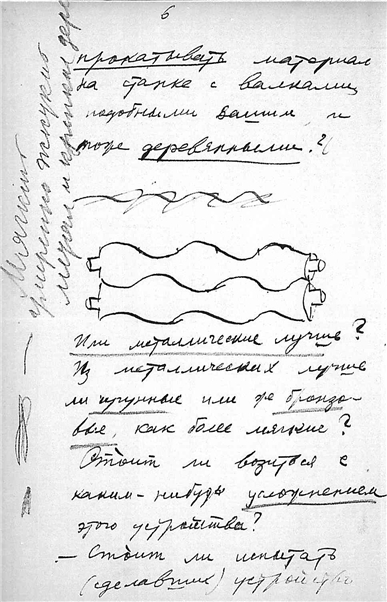 6
прокатывать материал
на станке с валками,
подобными Вашим, и
тоже деревянными?
Или металлические лучше?
Из металлических лучше
ли чугунные или же бронзо-
вые, как более мягкие?
Стоит ли возиться с
каким-нибудь усложнением
этого устройства?
– Стоит ли испытать
(сделавших) устройство
металл и